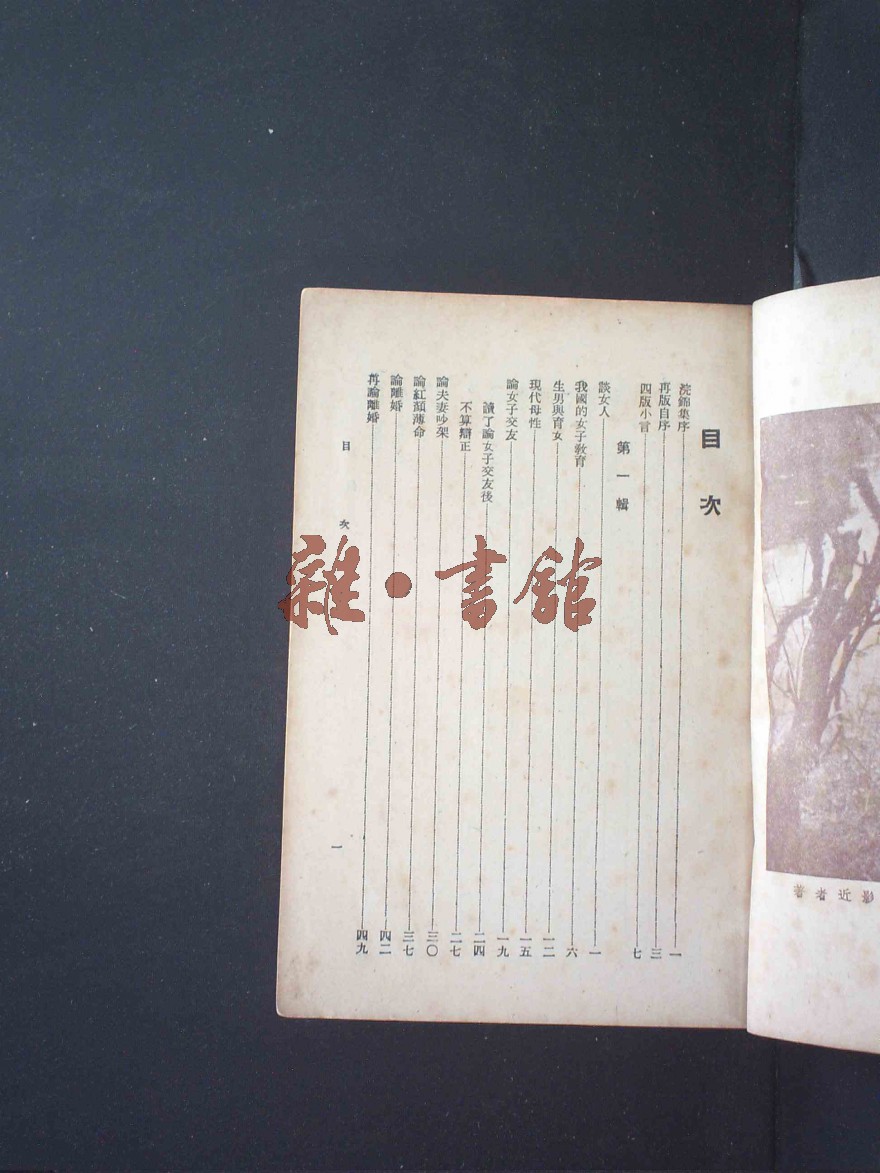 目次
浣錦集序 一
再版自序 三
四版小言 七
第一輯
談女人 一
我國的女子教育 六
生男與育女 一二
現代母性 一五
論女子交友 一九
讀了論女子交友後 二四
不算辯正 二七
論夫妻吵架 三〇
論紅顏薄命 三七
論離婚 四二
再論離婚 四九
目次 一
著者近影
雜·書館